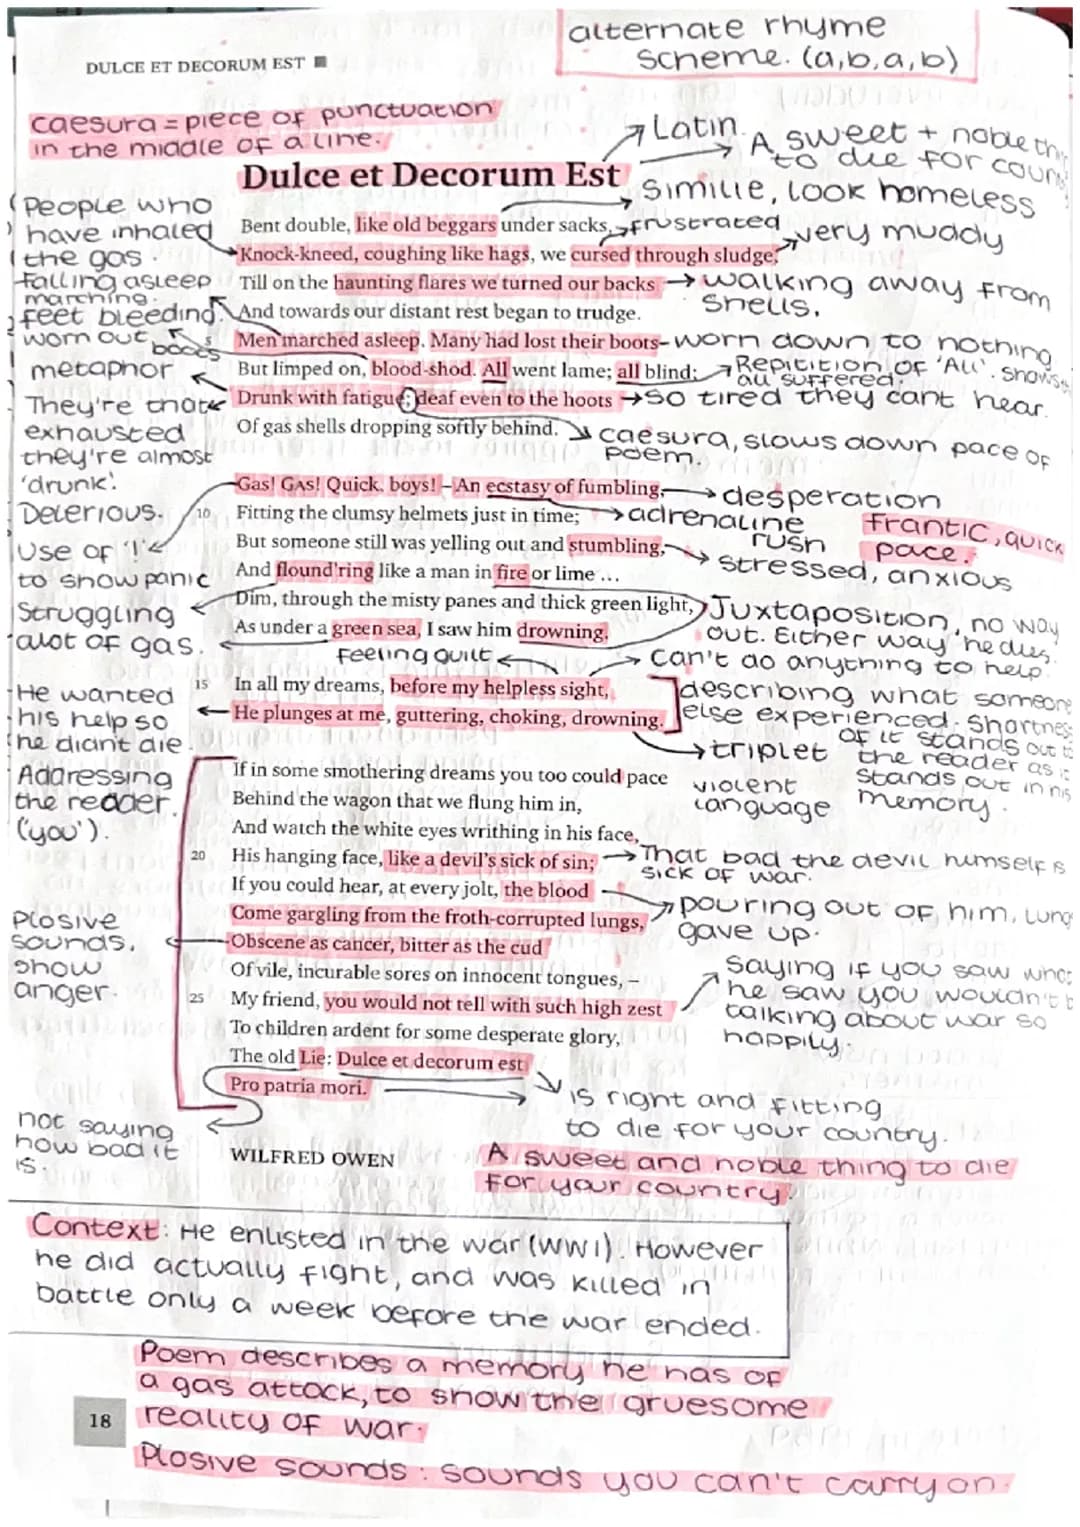 alternate rhyme
scheme. (a,b,a,b)
DULCE ET DECORUM EST
caesura = piece of punctuation
in the middle of a line.
Latin.
A sweet + noble
to die for
Dulce et Decorum Est
Similie, look homeless
People who
have inhaled
the gas.
falling asleep
marching.
feet bleeding.
worn out
boots
metaphor
They're that
exhausted
they're almost
'drunk'.
Delerious.
Use of '!'
to show panic
Struggling
alot of gas.
He wanted
his help so
he didnt die.
Addressing
the reader.
('you').
Plosive
sounds.
show
anger.
not saying
how bad it
is.
Bent double, like old beggars under sacks,
frustrated
very muddy
Knock-kneed, coughing like hags, we cursed through sludge,
Till on the haunting flares we turned our backs
walking away from
shells.
And towards our distant rest began to trudge.
5
Men marched asleep. Many had lost their boots
worn down to nothing
But limped on, blood-shod. All went lame; all blind;
Repitition of 'All'. shows
all suffered.
Drunk with fatigue; deaf even to the hoots
so tired they cant hear.
Of gas shells dropping softly behind.
caesura, slows down pace of
poem.
Gas! GAS! Quick, boys! – An ecstasy of fumbling,
desperation
10
Fitting the clumsy helmets just in time;
adrenaline
rush
frantic, quick
pace.
But someone still was yelling out and stumbling,
stressed, anxious
And flound'ring like a man in fire or lime ...
Dim, through the misty panes and thick green light,
Juxtaposition, no way
out. Either way he dies.
As under a green sea, I saw him drowning.
feeling guilt
can't do anything to help.
15
In all my dreams, before my helpless sight,
He plunges at me, guttering, choking, drowning.
describing what someone
else experienced. Shortness
of it stands out to
the reader as it
stands out in his
memory.
triplet
violent
language
If in some smothering dreams you too could pace
Behind the wagon that we flung him in,
And watch the white eyes writhing in his face,
20
His hanging face, like a devil's sick of sin;
That bad the devil himself is
sick of war.
If you could hear, at every jolt, the blood
pouring out of him, lung
gave up.
Come gargling from the froth-corrupted lungs,
Obscene as cancer, bitter as the cud
Of vile, incurable sores on innocent tongues, –
Saying if you saw what
he saw you wouldn't b
talking about war so
happily.
25
My friend, you would not tell with such high zest
To children ardent for some desperate glory,
The old Lie: Dulce et decorum est
Pro patria mori.
is right and fitting
to die for your country.
WILFRED OWEN
A sweet and noble thing to die
for your country.
Context: He enlisted in the war (WW1). However
he did actually fight, and was killed in
battle only a week before the war ended.
Poem describes a memory he has of
a gas attack, to show the gruesome
reality of war.
18
Plosive sounds: sounds you can't carry on.